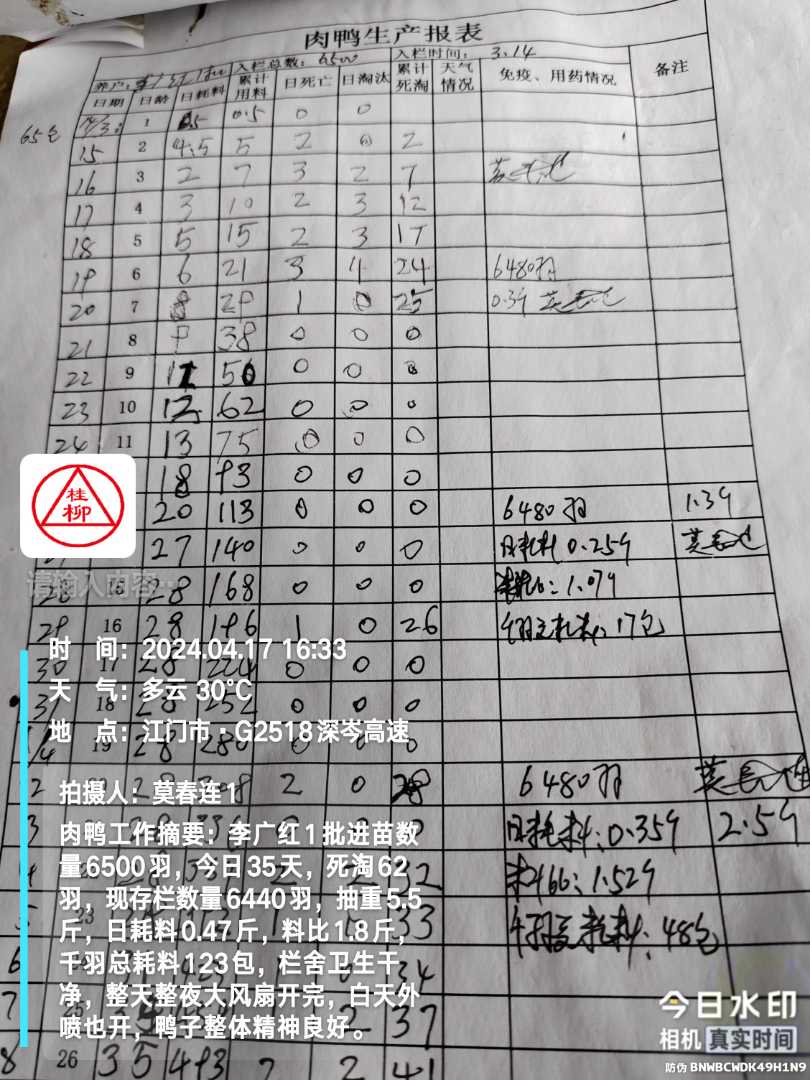 肉鸭生产报表
养户: 入栏总数: 6500 入栏时间: 3.14
日期 日龄 日耗料 累计用料 日死亡 日淘汰 累计死淘 天气情况 免疫、用药情况 备注
65包
1 0.5 0 0
15 2 4.5 5 2 0 2
16 3 2 7 3 2 7
17 4 3 10 2 3 12
18 5 5 15 2 3 17
19 6 6 21 3 4 24 6480羽
20 7 8 29 1 0 25 0.39
21 8 9 38 0 0 0
22 9 12 50 0 0 0
23 10 12 62 0 0 0
24 11 13 75 0 0 0
18 93 0 0 0
20 113 0 0 0 6480羽 1.39
27 140 0 0 0 日耗料 0.259
15 28 168 0 0 0 1.079
29 16 28 196 1 0 26 17包
30 17 28 224 0 0 0
31 18 28 252 0 0 0
1/4 19 28 280 0 0 0
2 2 0 28 6480羽
3 0 日耗料:0.359 2.59
4 32 料比:1.529
5 23 33 耗料:48包
6 34
7 25 2 37
8 26 35 493 2 41
桂柳
请输入内容…
时 间：2024.04.17 16:33
天 气：多云 30℃
地 点：江门市·G2518深岑高速
拍摄人：莫春连1
肉鸭工作摘要：李广红1批进苗数
量6500羽，今日35天，死淘62
羽，现存栏数量6440羽，抽重5.5
斤，日耗料0.47斤，料比1.8斤，
千羽总耗料123包，栏舍卫生干
净，整天整夜大风扇开完，白天外
喷也开，鸭子整体精神良好。
今日水印
相机 真实时间
防伪 BNWBCWDK49H1N9